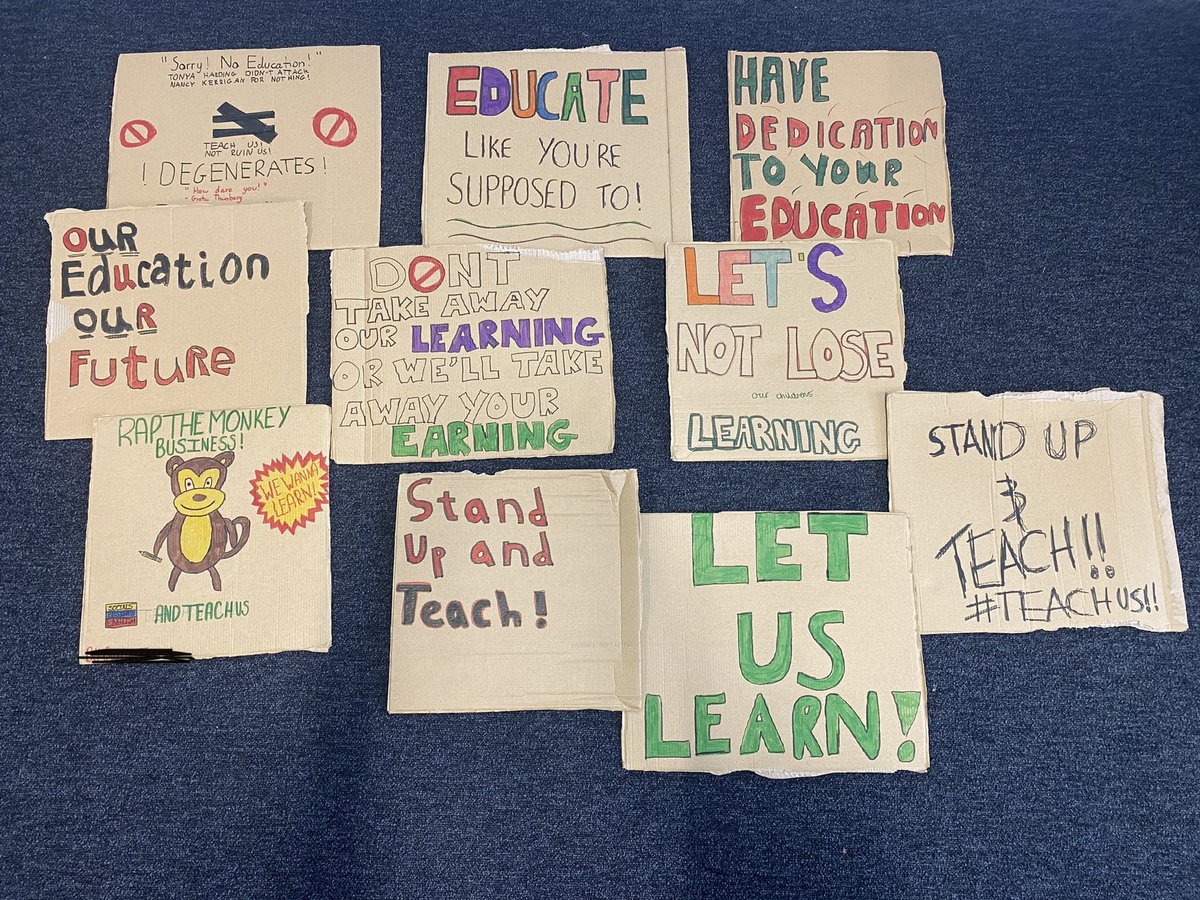 "Sorry! No Education!"
TONYA HARDING DIDN'T ATTACK
NANCY KERRIGAN FOR NOTHING!
TEACH US!
NOT RUIN US!
! DEGENERATES !
"How dare you!"
- Greta Thunberg
EDUCATE
LIKE YOU'RE
SUPPOSED TO!
HAVE
DEDICATION
TO YOUR
EDUCATION
OUR
Education
OUR
Future
DONT
TAKE AWAY
OUR LEARNING
OR WE'LL TAKE
AWAY YOUR
EARNING
LET'S
NOT LOSE
our childrens
LEARNING
RAP THE MONKEY
BUSINESS!
WE WANNA
LEARN!
AND TEACH US
Stand
Up and
Teach!
LET
US
LEARN!
STAND UP
&
TEACH!!
#TEACH US!!